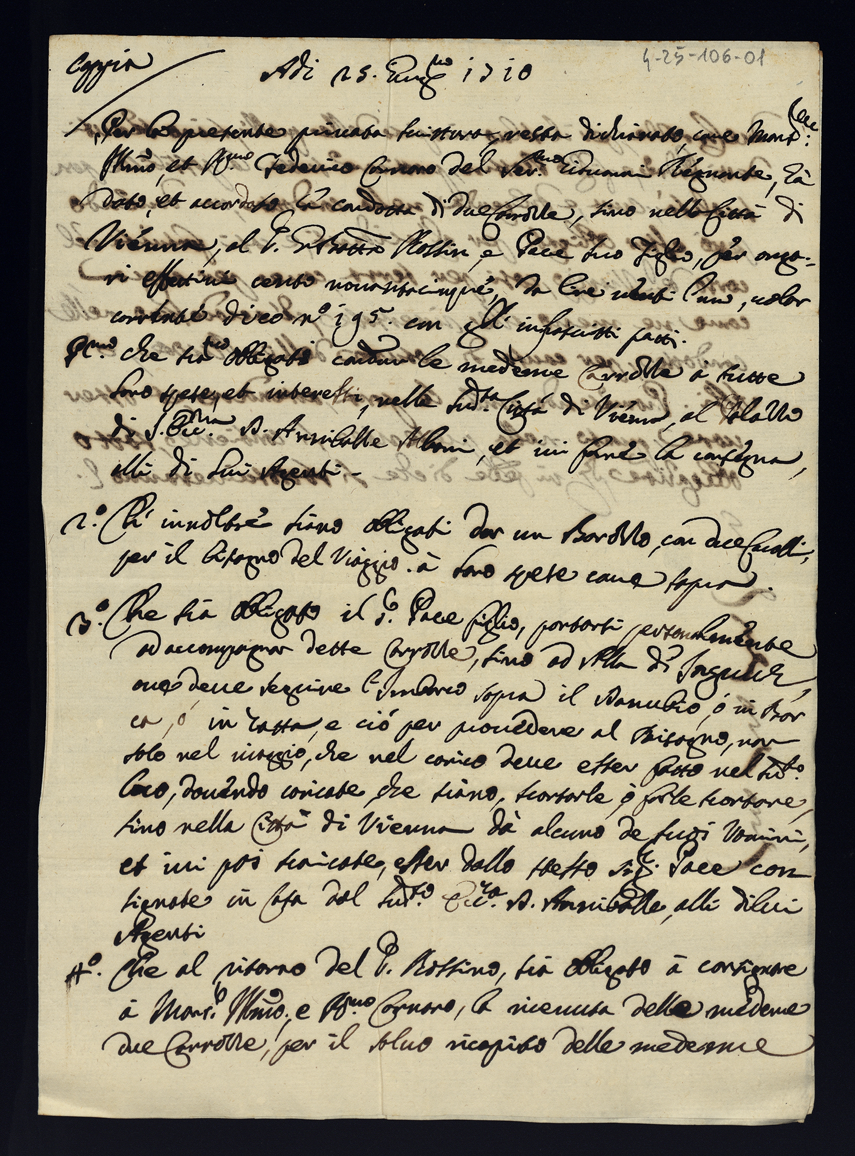 Coppia
4-25-106-01
Adi 25. Giug.no 1710
Per la presente privata scrittura, resta dichiarato, come Mons.r
Ill.mo, et R.mo Federico Cornaro del Ser.mo Giovanni Regnante, hà
dato, et accordato la condotta di due Carrozze, sino nella Città di
Vienna, al S. Gio Batta Rossin, e Pace suo Figlio, per onga-
ri effettivi cento novantacinque, da Lire venti l'uno, valor
corrente dico n.o 195. con gli infrascritti patti.
P.mo che siano obligati condur le medeme Carrozze à tutte
loro spese, et interessi, nella sud.ta Città di Vienna, al Palazzo
di S. Ecc.za D. Annibale Albani, et ivi farne la consegna,
alli di lui Agenti -
2.o Ch'innoltre siano obligati dar un Barozzo, con due Cavalli,
per il bisogno del Viaggio. à loro spese come sopra.
3.o Che sia obligato il S.r Pace figlio, portarsi personalmente
ad accompagnar dette Carrozze, sino ad Ala di
ove deve seguire l'imbarco sopra il Danubio, ò in Bar
ca, ò in Zatta, e ciò per provedere al Bisogno, non
solo nel viaggio, che nel carico deve esser fatto nel sud.to
loco, dovendo caricate, che siano, scortarle, ò farle scortare,
sino nella Città di Vienna dà alcuno de suoi Uomini,
et ivi poi scaricate, esser dallo stesso Sig.r Pace con
signate in Casa del sud.to Ecc.za D. Annibale, alli di lui
Agenti
4.o Che al ritorno del S. Rossino, sia obligato à consignare
à Mons.r Ill.mo, e R.mo Cornaro, la ricevuta delle medeme
due Carrozze, per il salvo ricapito delle medeme